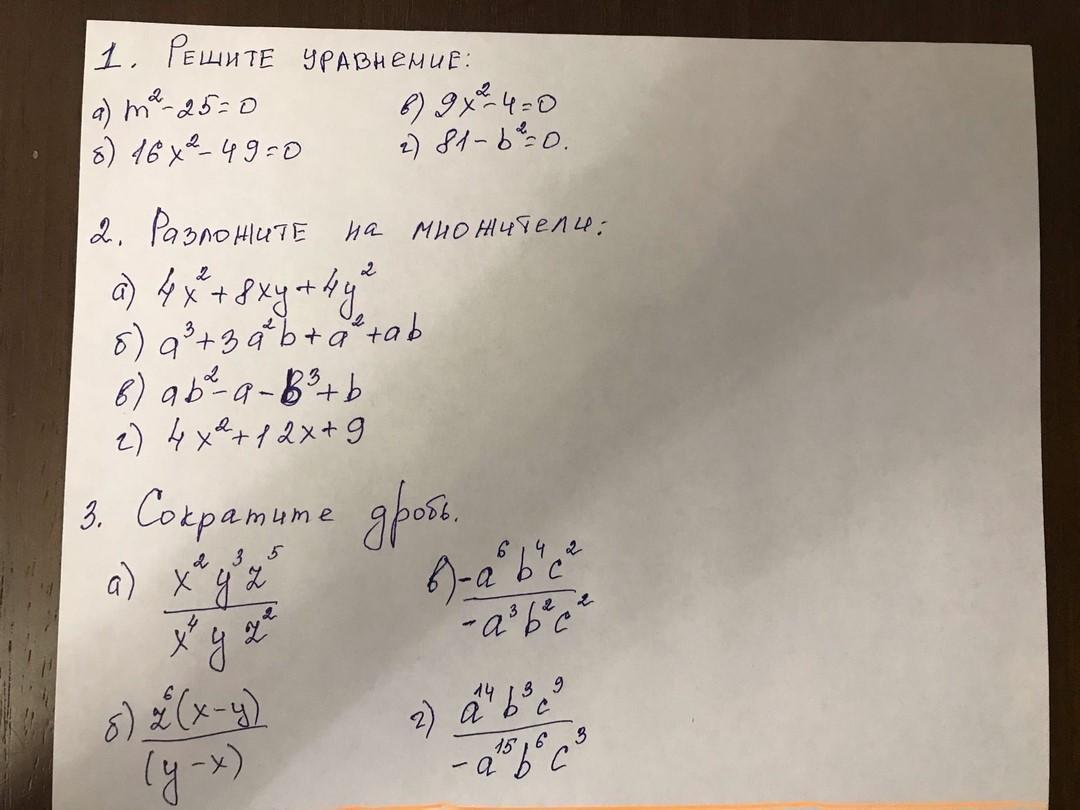 1. Решите уравнение:
а) m²-25=0 в) 9x²-4=0
б) 16x²-49=0 г) 81-b²=0.
2. Разложите на множители:
а) 4x²+8xy+4y²
б) a³+3a²b+a²+ab
в) ab²-a-b³+b
г) 4x²+12x+9
3. Сократите дробь.
а) x²y³z⁵ / x⁴yz² в) -a⁶b⁴c² / -a³b²c²
б) z⁶(x-y) / (y-x) г) a¹⁴b³c⁹ / -a¹⁵b⁶c³